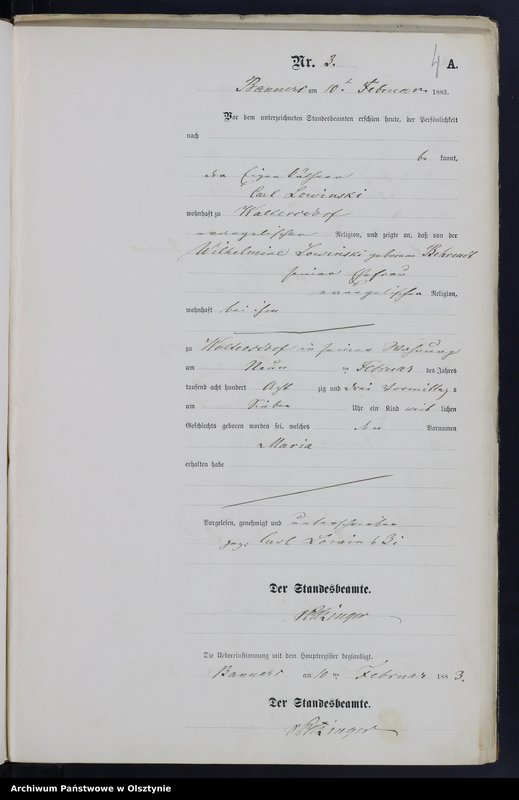 4
Nr. 3. A.
Banners am 10ᵗ Februar 1883.
Vor dem unterzeichneten Standesbeamten erschien heute, der Persönlichkeit
nach
be kannt,
der Eigenkäthner
Carl Lowinski
wohnhaft zu Waltersdorf
evangelischer Religion, und zeigte an, daß von der
Wilhelmine Lowinski geborene Behrendt
seiner Ehefrau
evangelischer Religion,
wohnhaft bei ihm
zu Waltersdorf in seiner Wohnung
am Neun ten Februar des Jahres
tausend acht hundert Acht zig und drei Vormittag s
um Sieben Uhr ein Kind weib lichen
Geschlechts geboren worden sei, welches den Vornamen
Maria
erhalten habe
Vorgelesen, genehmigt und unterschrieben
gez. Carl Lowinski
Der Standesbeamte.
Die Uebereinstimmung mit dem Hauptregister beglaubigt.
Banners am 10 ten Februar 188 3.
Der Standesbeamte.
Archiwum Państwowe w Olsztynie